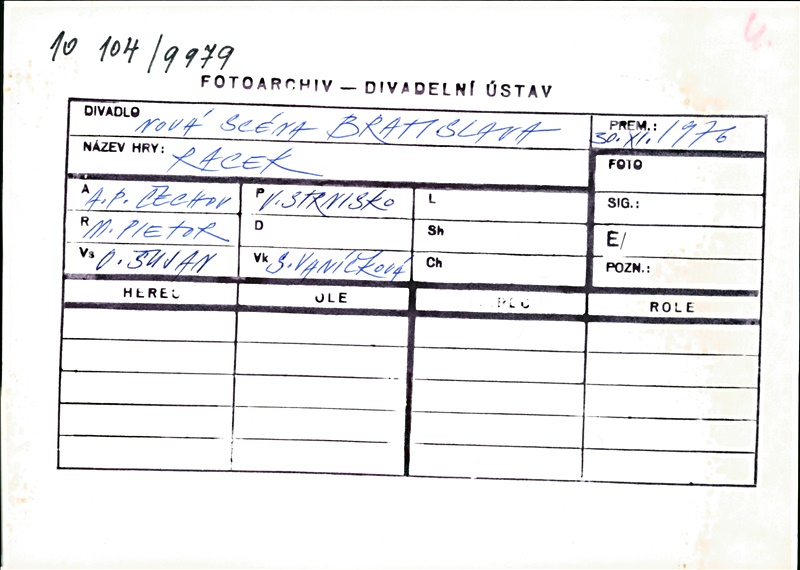 10 104/9979
FOTOARCHIV — DIVADELNÍ ÚSTAV
DIVADLO NOVÁ SCÉNA BRATISLAVA
PREM.: 30.XI.1976
NÁZEV HRY: RACEK
FOTO
A A.P. ČECHOV P V. STRNISKO L
SIG.:
R M. PIETOR D Sh
E/
Vs O. ŠUJAN Vk S. VANÍČKOVÁ Ch
POZN.:
HEREC OLE ROLE